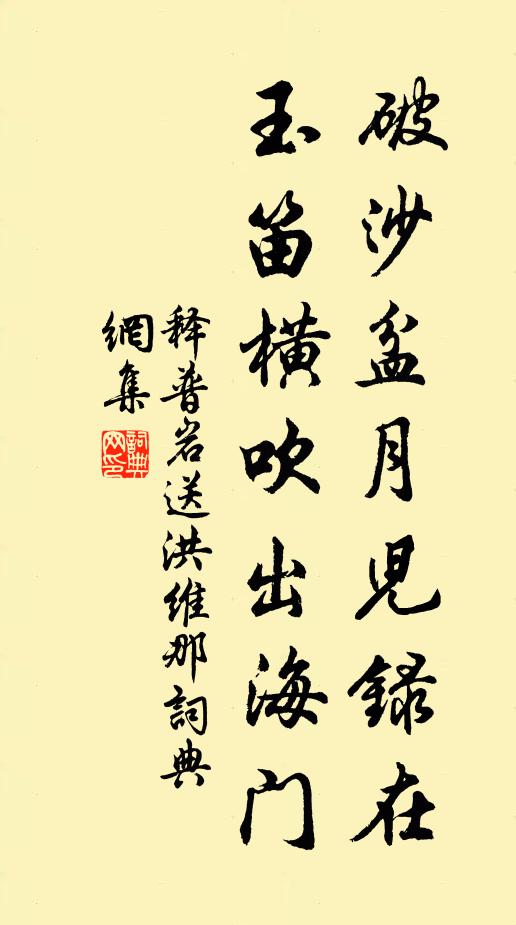 破沙盆月児録在
玉笛横吹出海门
释普岩送洪维那詞典
網集
詞典网印